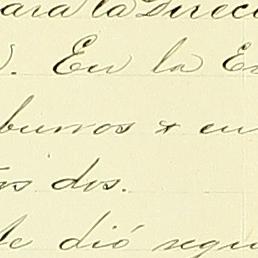 ara la Direcc
). En la E
burros & en
os dos.
te dió segu